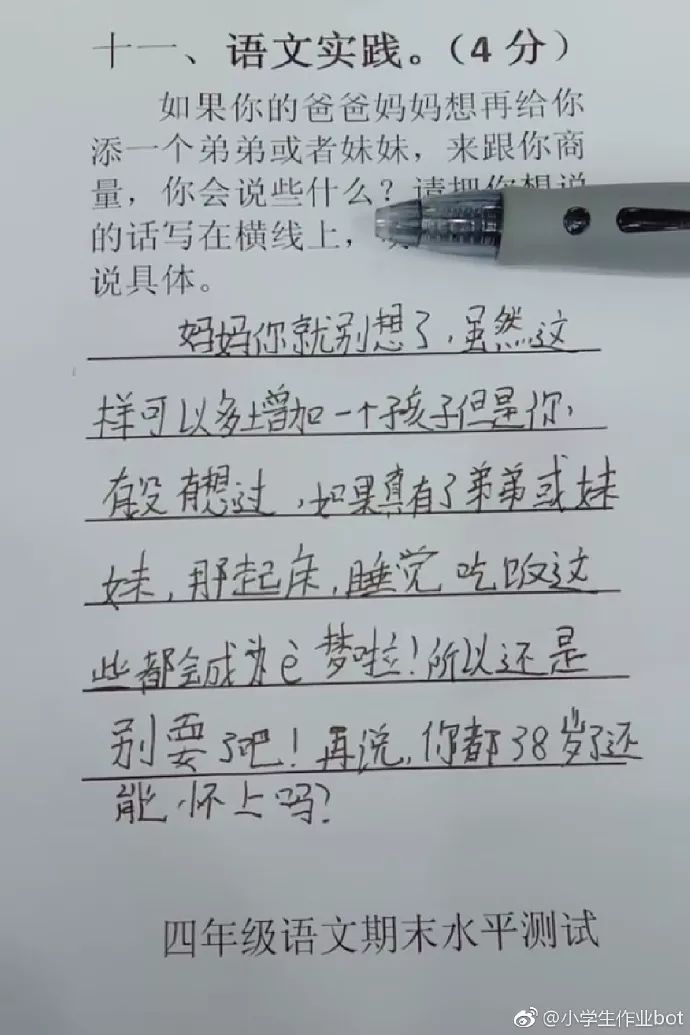 十一、语文实践。（4分）
如果你的爸爸妈妈想再给你
添一个弟弟或者妹妹，来跟你商
量，你会说些什么？请把你想说
的话写在横线上，
说具体。
妈妈你就别想了，虽然这
样可以多增加一个孩子但是你，
有没有想过，如果真有了弟弟或妹
妹，那起床，睡觉吃饭这
些都会成为e梦啦！所以还是
别要了吧！再说，你都38岁了还
能怀上吗？
四年级语文期末水平测试
@小学生作业bot